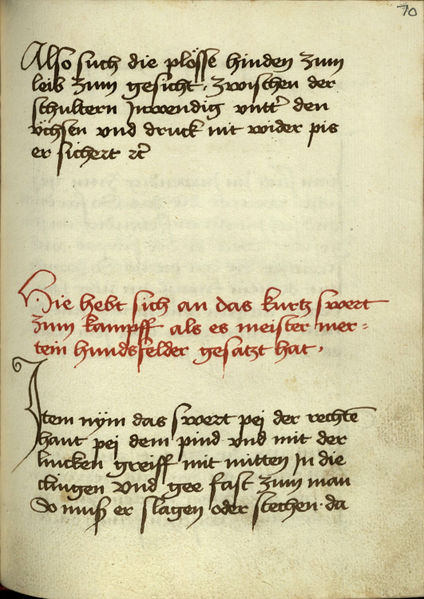 70
Also such die plösse hinden zum
leib zum gesicht · zwischen der
schultern Inwendig vntt' den
vchsen vnd druck nit wider pis
er sichert rc
Hie hebt sich an das kurtz swert
zum kampff als es meister mer=
tein hundsfelder gesatzt hat ·
Item nÿm das swert pei der rechtē
hant pei dem pind vnd mit der
lincken greiff mit mitten In die
clingen vnd gee fast zum man
So muß er slagen oder stechen · da